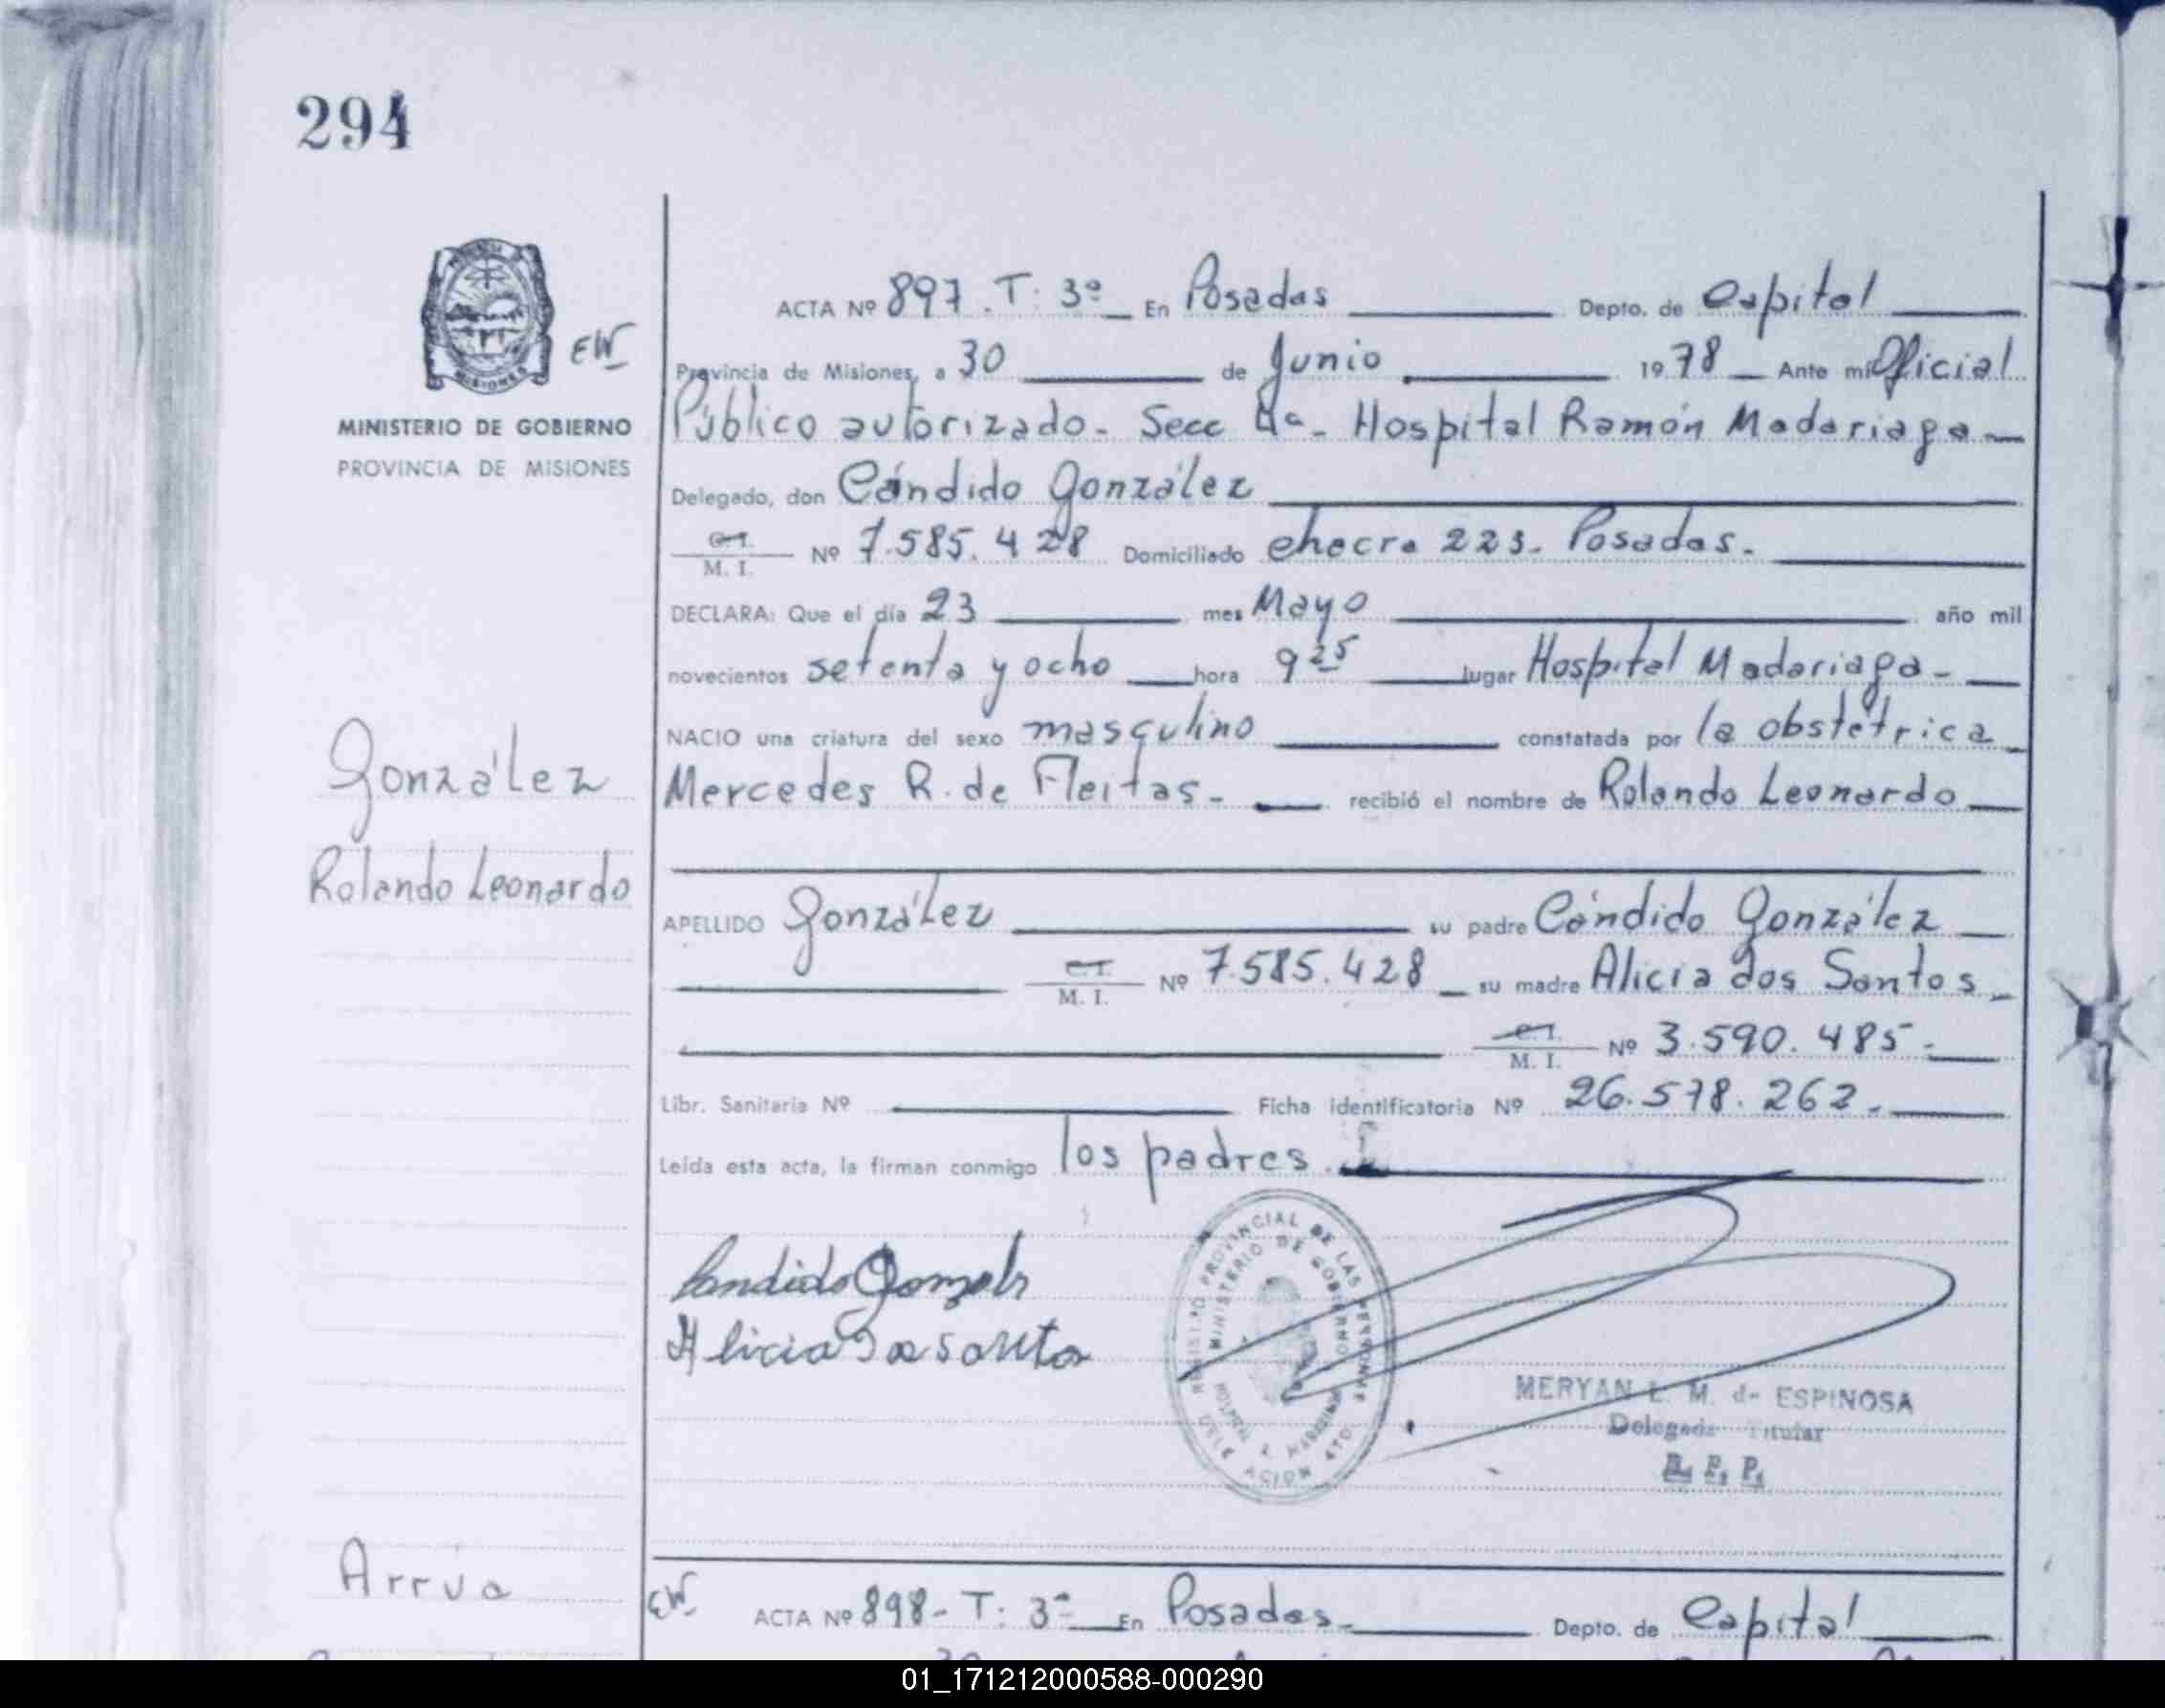 294
ACTA Nº 897. T: 3º En Posadas Depto. de Capital
EW
Provincia de Misiones, a 30 de Junio 1978 Ante mi Oficial
MINISTERIO DE GOBIERNO
PROVINCIA DE MISIONES
Público autorizado. Secc 4a. Hospital Ramón Madariaga
Delegado, don Cándido González
C.I. M. I. Nº 7.585.428 Domiciliado chacra 223. Posadas.
DECLARA: Que el día 23 mes Mayo año mil
novecientos setenta y ocho hora 9 25 lugar Hospital Madariaga
NACIO una criatura del sexo masculino constatada por la obstétrica
Mercedes R. de Fleitas. recibió el nombre de Rolando Leonardo
González
Rolando Leonardo
APELLIDO González su padre Cándido González
C.I. M. I. Nº 7.585.428 su madre Alicia dos Santos
C.I. M. I. Nº 3.590.485.
Libr. Sanitaria Nº Ficha identificatoria Nº 26.578.262.
Leída esta acta, la firman conmigo los padres.
Candido Gonzalz
Alicia Dos Santos
REGISTRO PROVINCIAL DE LAS PERSONAS
MINISTERIO DE GOBIERNO
HOSPITAL R. MADARIAGA
DELEGACION 4TO.
MERYAN L. M. de ESPINOSA
Delegada Titular
R. P. P.
Arrua
EW ACTA Nº 898- T: 3º En Posadas Depto. de Capital
01_171212000588-000290